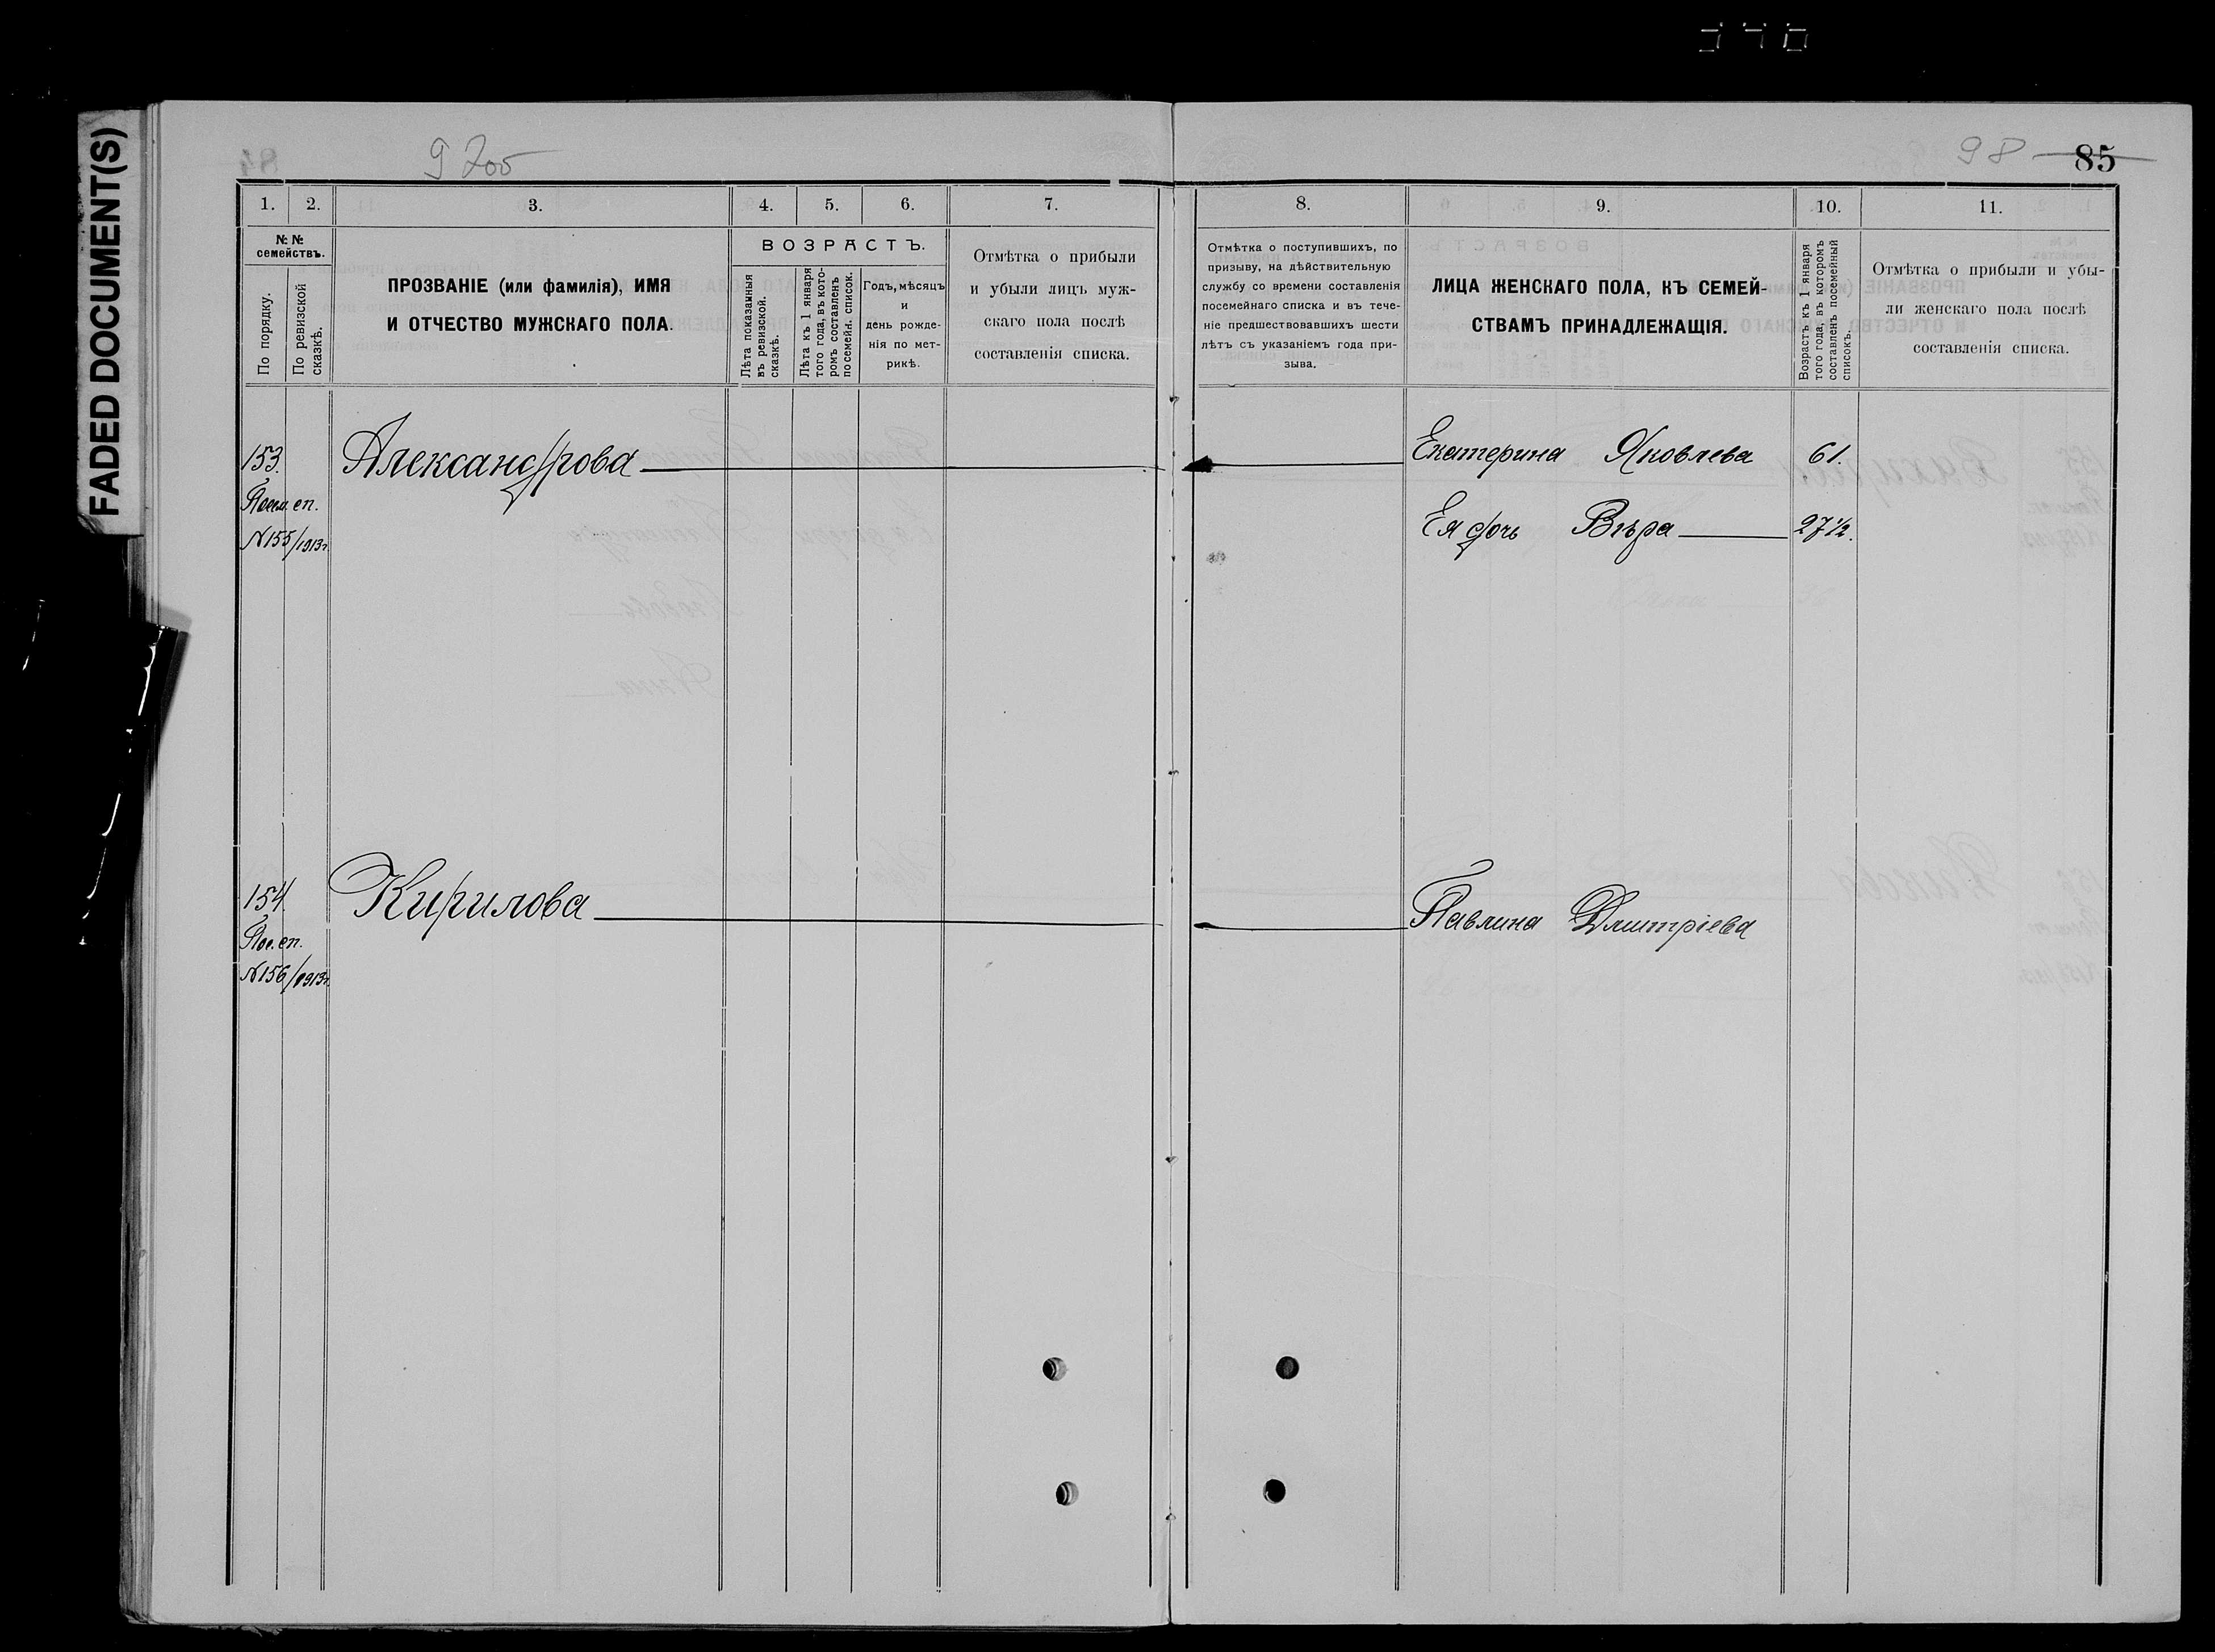 FADED DOCUMENT(S)
98 85
1. 2. 3. 4. 5. 6. 7.
№ №
семействъ.
По порядку.
По ревизской
сказкѣ.
ПРОЗВАНІЕ (или фамилія), ИМЯ
И ОТЧЕСТВО МУЖСКАГО ПОЛА.
ВОЗРАСТЪ.
Лѣта показанныя
въ ревизской.
сказкѣ.
Лѣта къ 1 января
того года, въ кото-
ромъ составленъ
посемейн. список.
Годъ, мѣсяцъ
и
день рожде-
нія по мет-
рикѣ.
Отмѣтка о прибыли
и убыли лицъ муж-
скаго пола послѣ
составленія списка.
8. 9. 10. 11.
Отмѣтка о поступившихъ, по
призыву, на дѣйствительную
службу со времени составленія
посемейнаго списка и въ тече-
ніе предшествовавшихъ шести
лѣтъ съ указаніемъ года при-
зыва.
ЛИЦА ЖЕНСКАГО ПОЛА, КЪ СЕМЕЙ-
СТВАМЪ ПРИНАДЛЕЖАЩІЯ.
Возрастъ къ 1 января
того года, въ которомъ
составленъ посемейный
списокъ.
Отмѣтка о прибыли и убы-
ли женскаго пола послѣ
составленія списка.
153. Александрова Екатерина Яковлева 61.
Посем. сп.
№155/1913г. Ея дочь Вѣра 27½.
154. Кирилова Павлина Дмитріева
Пос. сп.
№156/1913г.